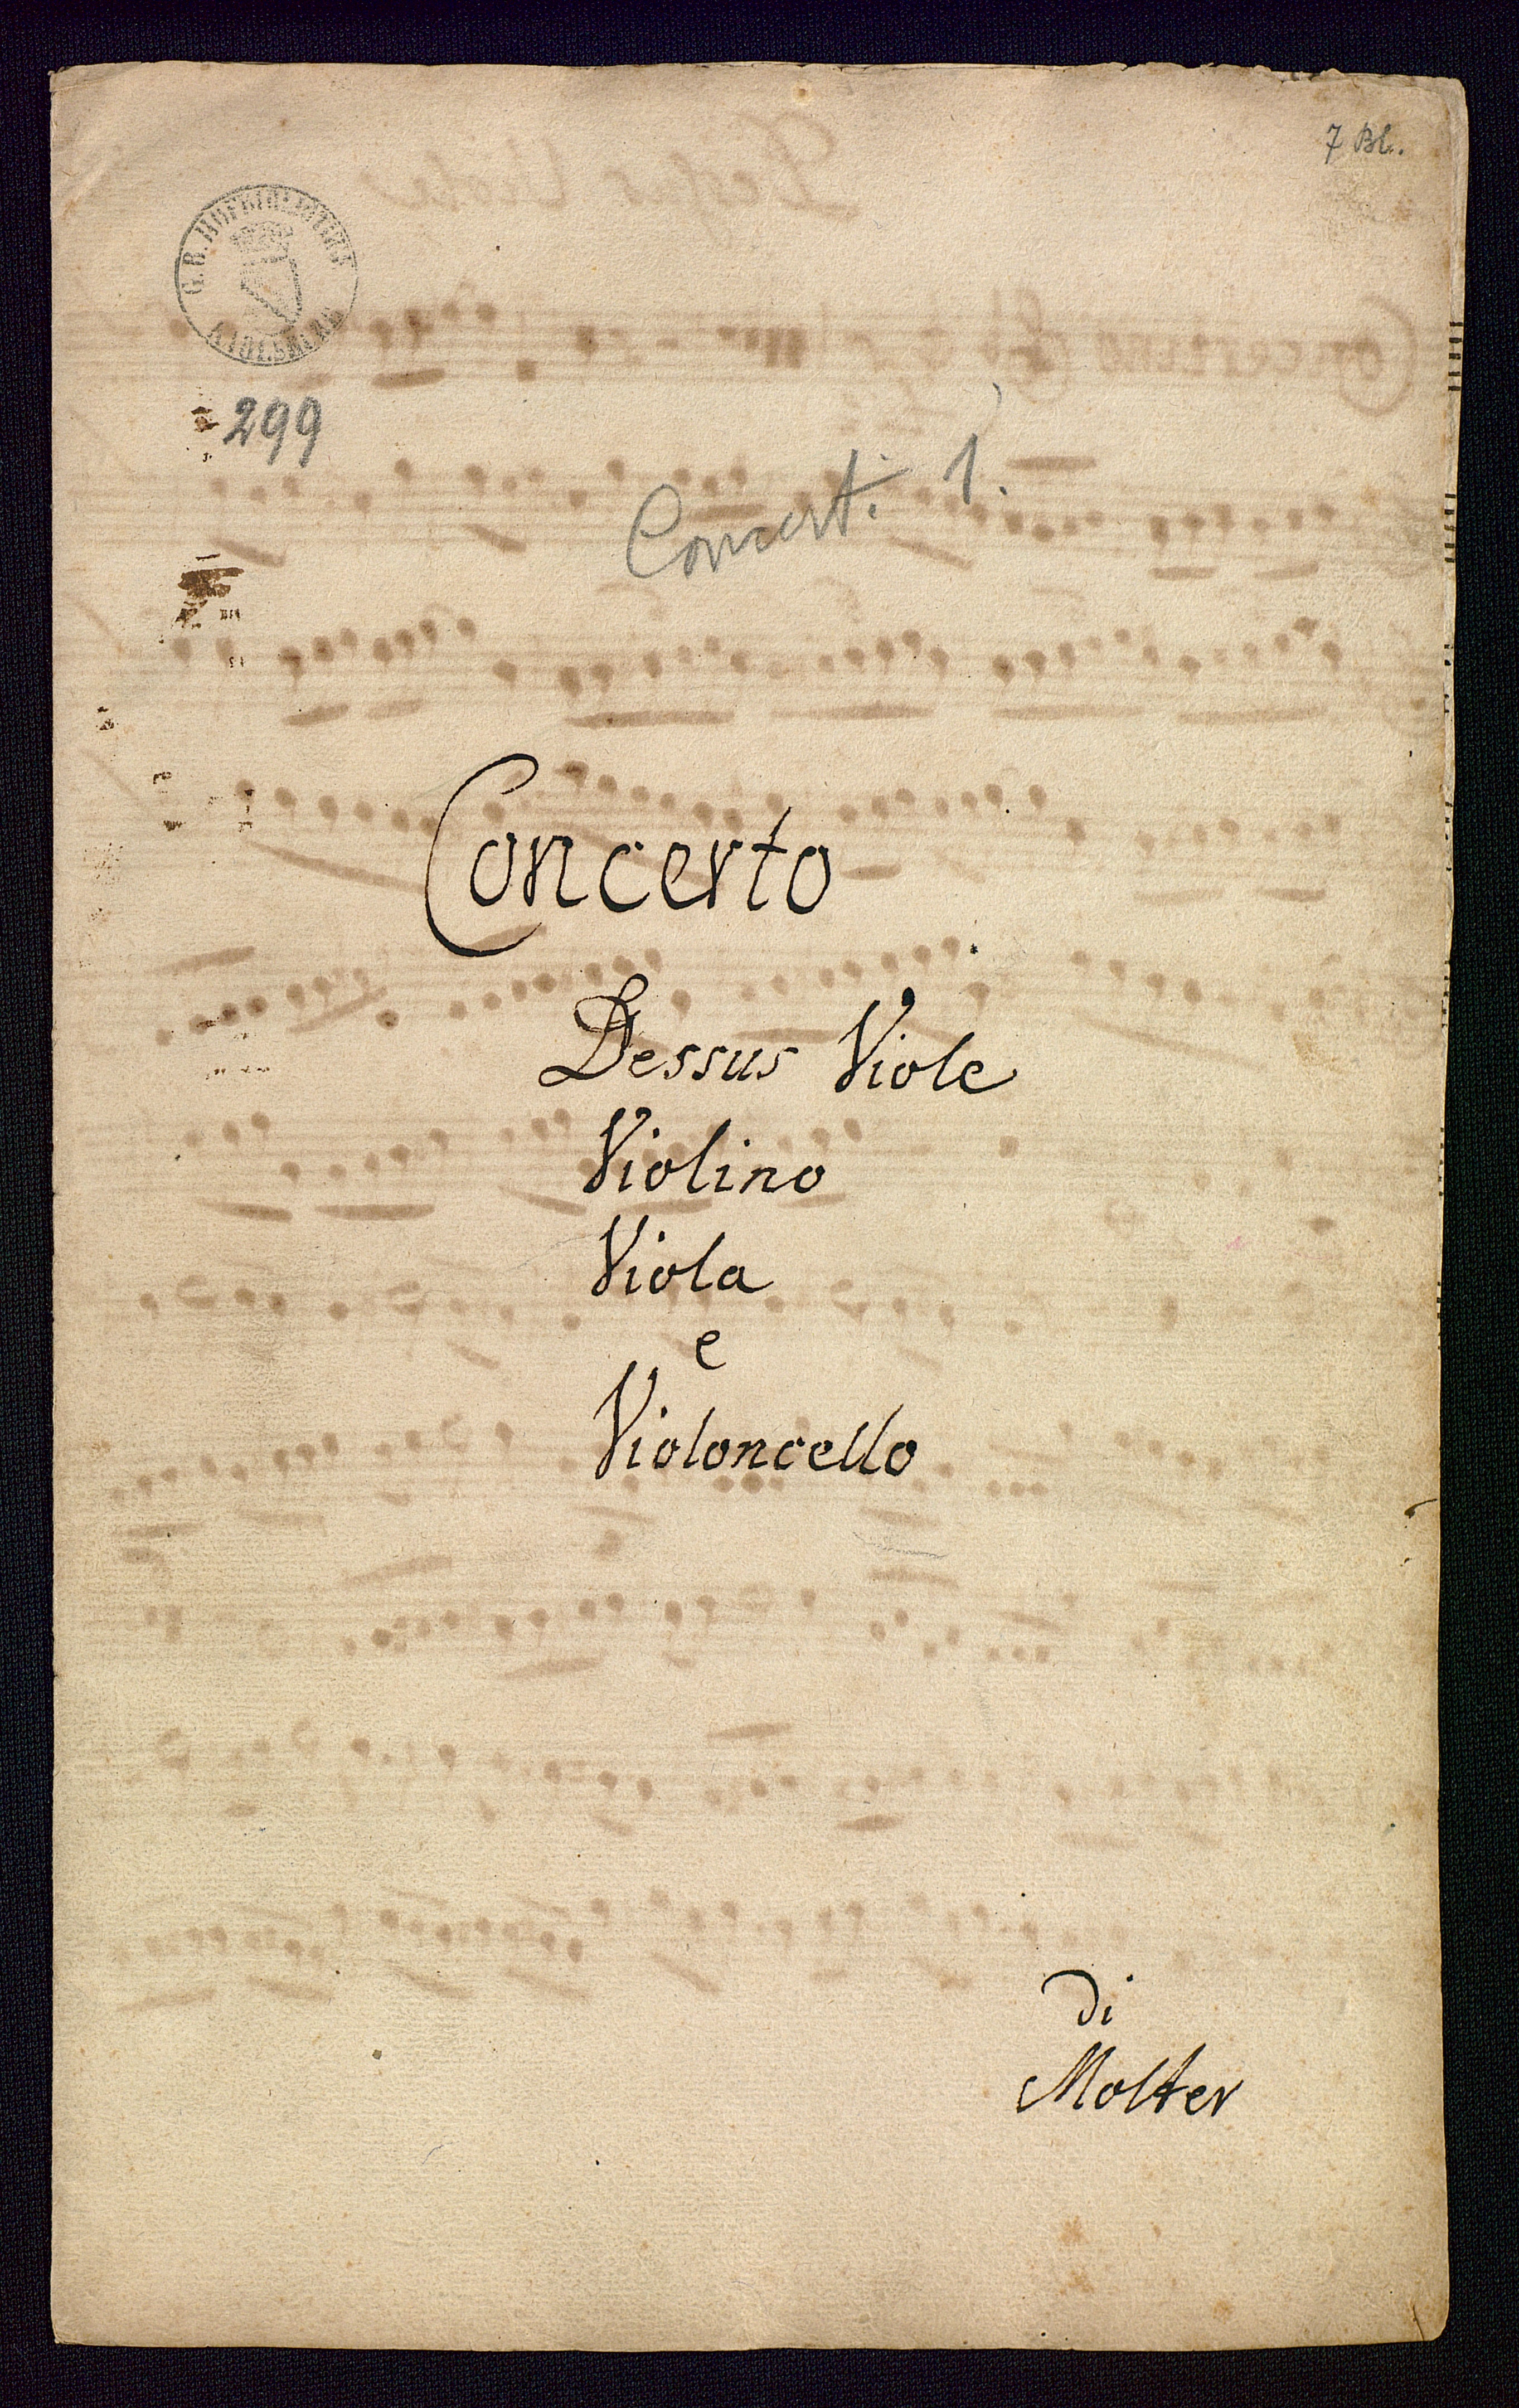 7 Bl.
G. B. HOFBIBLIOTHEK
KARLSRUHE
299
Concert. 1.
Concerto
Dessus Viole
Violino
Viola
e
Violoncello
di
Molter